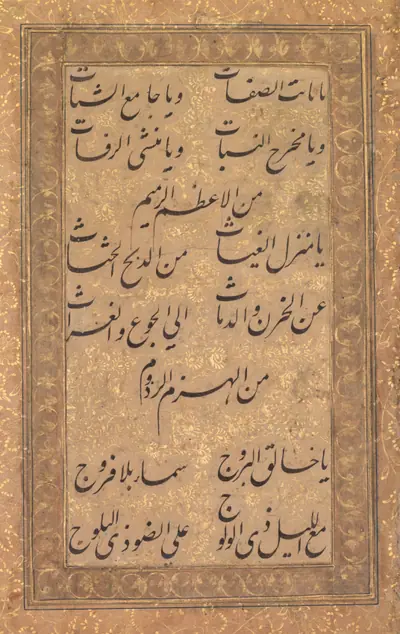 يا ثابت الصفات ويا جامع الشتات
ويا مخرج النبات ويا منشى الرفات
من الاعظم الرميم
يا منزل الغياث من الدبح الحثاث
عن الخرن والدماث الي الجوع والغراث
من الهزم الرذوم
يا خالق البروج سما بلا فروج
مع الليل ذى الولوج علي الضو ذى البلوج